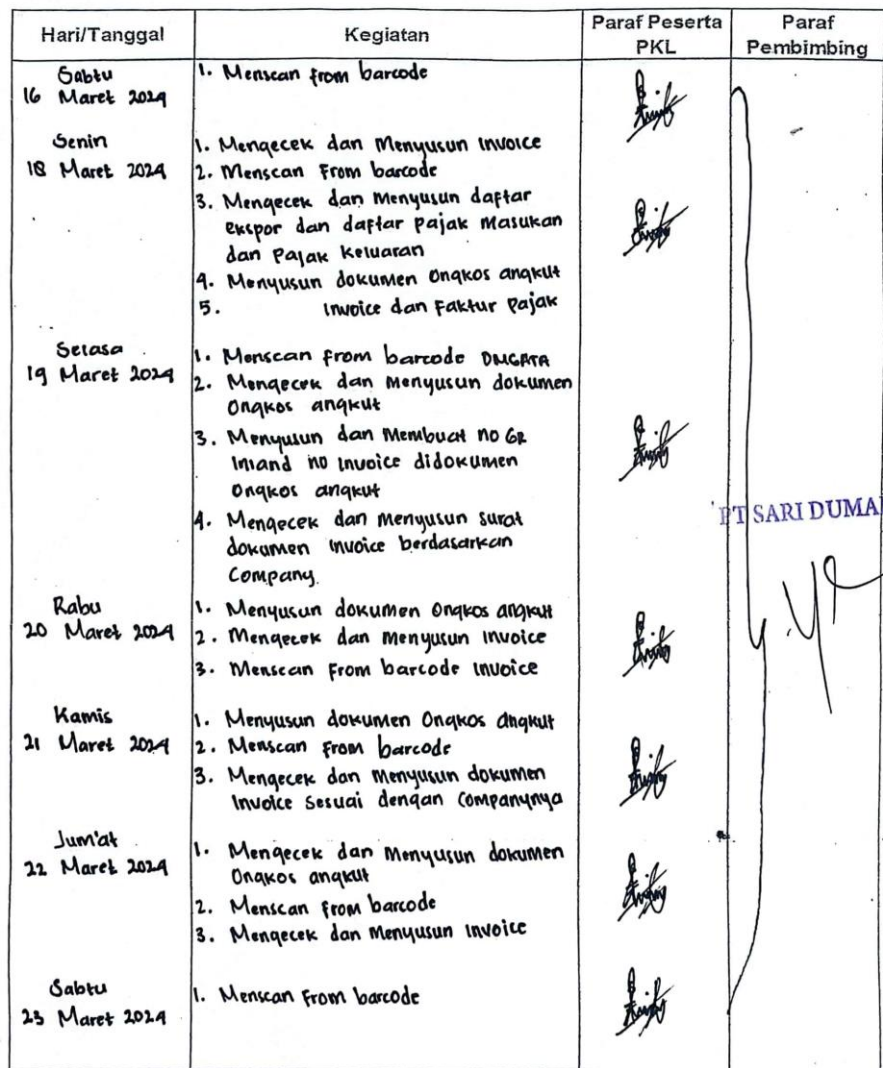 Hari/Tanggal Kegiatan Paraf Peserta PKL Paraf Pembimbing
Sabtu
16 Maret 2024
1. Menscan from barcode
Senin
18 Maret 2024
1. Mengecek dan Menyusun Invoice
2. Menscan From barcode
3. Mengecek dan Menyusun daftar
ekspor dan daftar Pajak Masukan
dan Pajak Keluaran
4. Menyusun dokumen Ongkos angkut
5. Invoice dan Faktur Pajak
Selasa
19 Maret 2024
1. Menscan from barcode
2. Mengecek dan Menyusun dokumen
Ongkos angkut
3. Menyusun dan Membuat no GR
Inland no Invoice didokumen
Ongkos angkut
4. Mengecek dan menyusun surat
dokumen Invoice berdasarkan
Company.
PT SARI DUMAI
Rabu
20 Maret 2024
1. Menyusun dokumen Ongkos angkut
2. Mengecek dan menyusun Invoice
3. Menscan From barcode Invoice
Kamis
21 Maret 2024
1. Menyusun dokumen Ongkos angkut
2. Menscan From barcode
3. Mengecek dan Menyusun dokumen
Invoice Sesuai dengan Companynya
Jum'at
22 Maret 2024
1. Mengecek dan Menyusun dokumen
Ongkos angkut
2. Menscan from barcode
3. Mengecek dan Menyusun Invoice
Sabtu
23 Maret 2024
1. Menscan From barcode